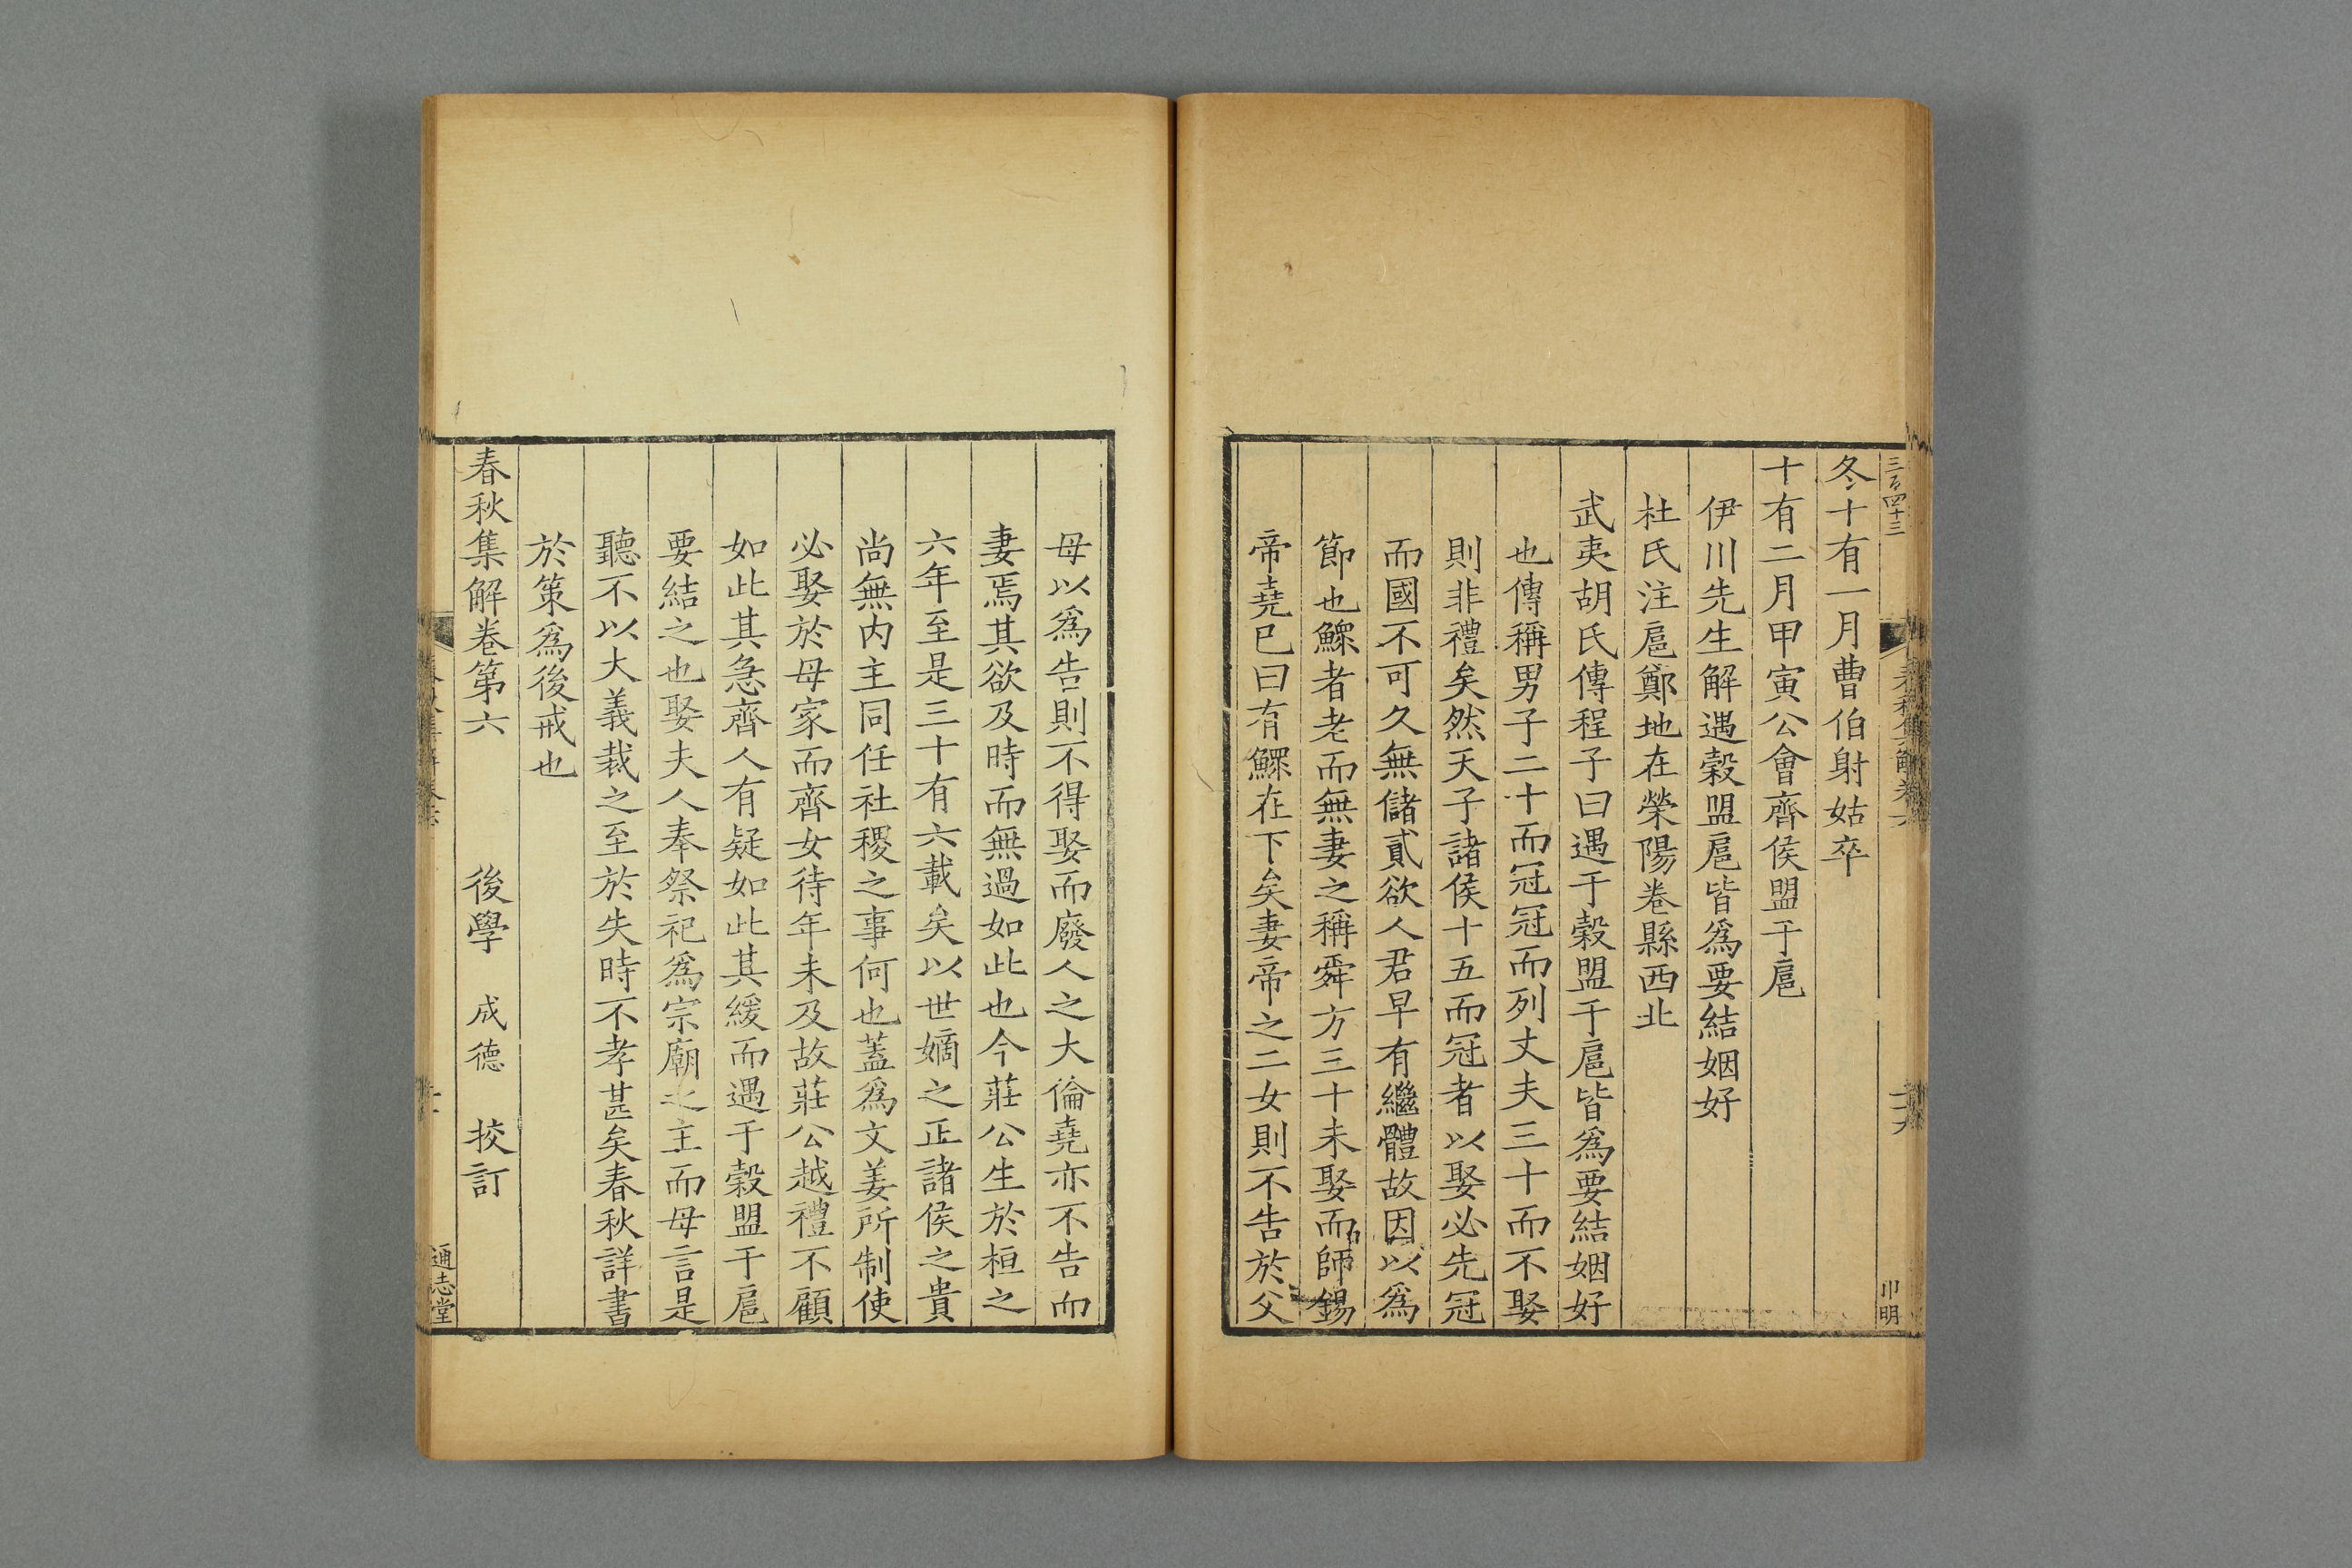 三百四十三
冬十有一月曹伯射姑卒
十有二月甲寅公會齊侯盟于扈
伊川先生解遇穀盟扈皆爲要結姻好
杜氏注扈鄭地在榮陽卷縣西北
武夷胡氏傳程子曰遇于穀盟于扈皆爲要結姻好
也傳稱男子二十而冠冠而列丈夫三十而不娶
則非禮矣然天子諸侯十五而冠者以娶必先冠
而國不可久無儲貳欲人君早有繼體故因以爲
節也鰥者老而無妻之稱舜方三十未娶而師錫
帝堯已曰有鰥在下矣妻帝之二女則不告於父
母以爲告則不得娶而廢人之大倫堯亦不告而
妻焉其欲及時而無過如此也今莊公生於桓之
六年至是三十有六載矣以世嫡之正諸侯之貴
尚無內主同任社稷之事何也蓋爲文姜所制使
必娶於母家而齊女待年未及故莊公越禮不顧
如此其急齊人有疑如此其緩而遇于穀盟于扈
要結之也娶夫人奉祭祀爲宗廟之主而母言是
聽不以大義裁之至於失時不孝甚矣春秋詳書
於策爲後戒也
春秋集解卷第六 後學 成德 挍訂
通志堂